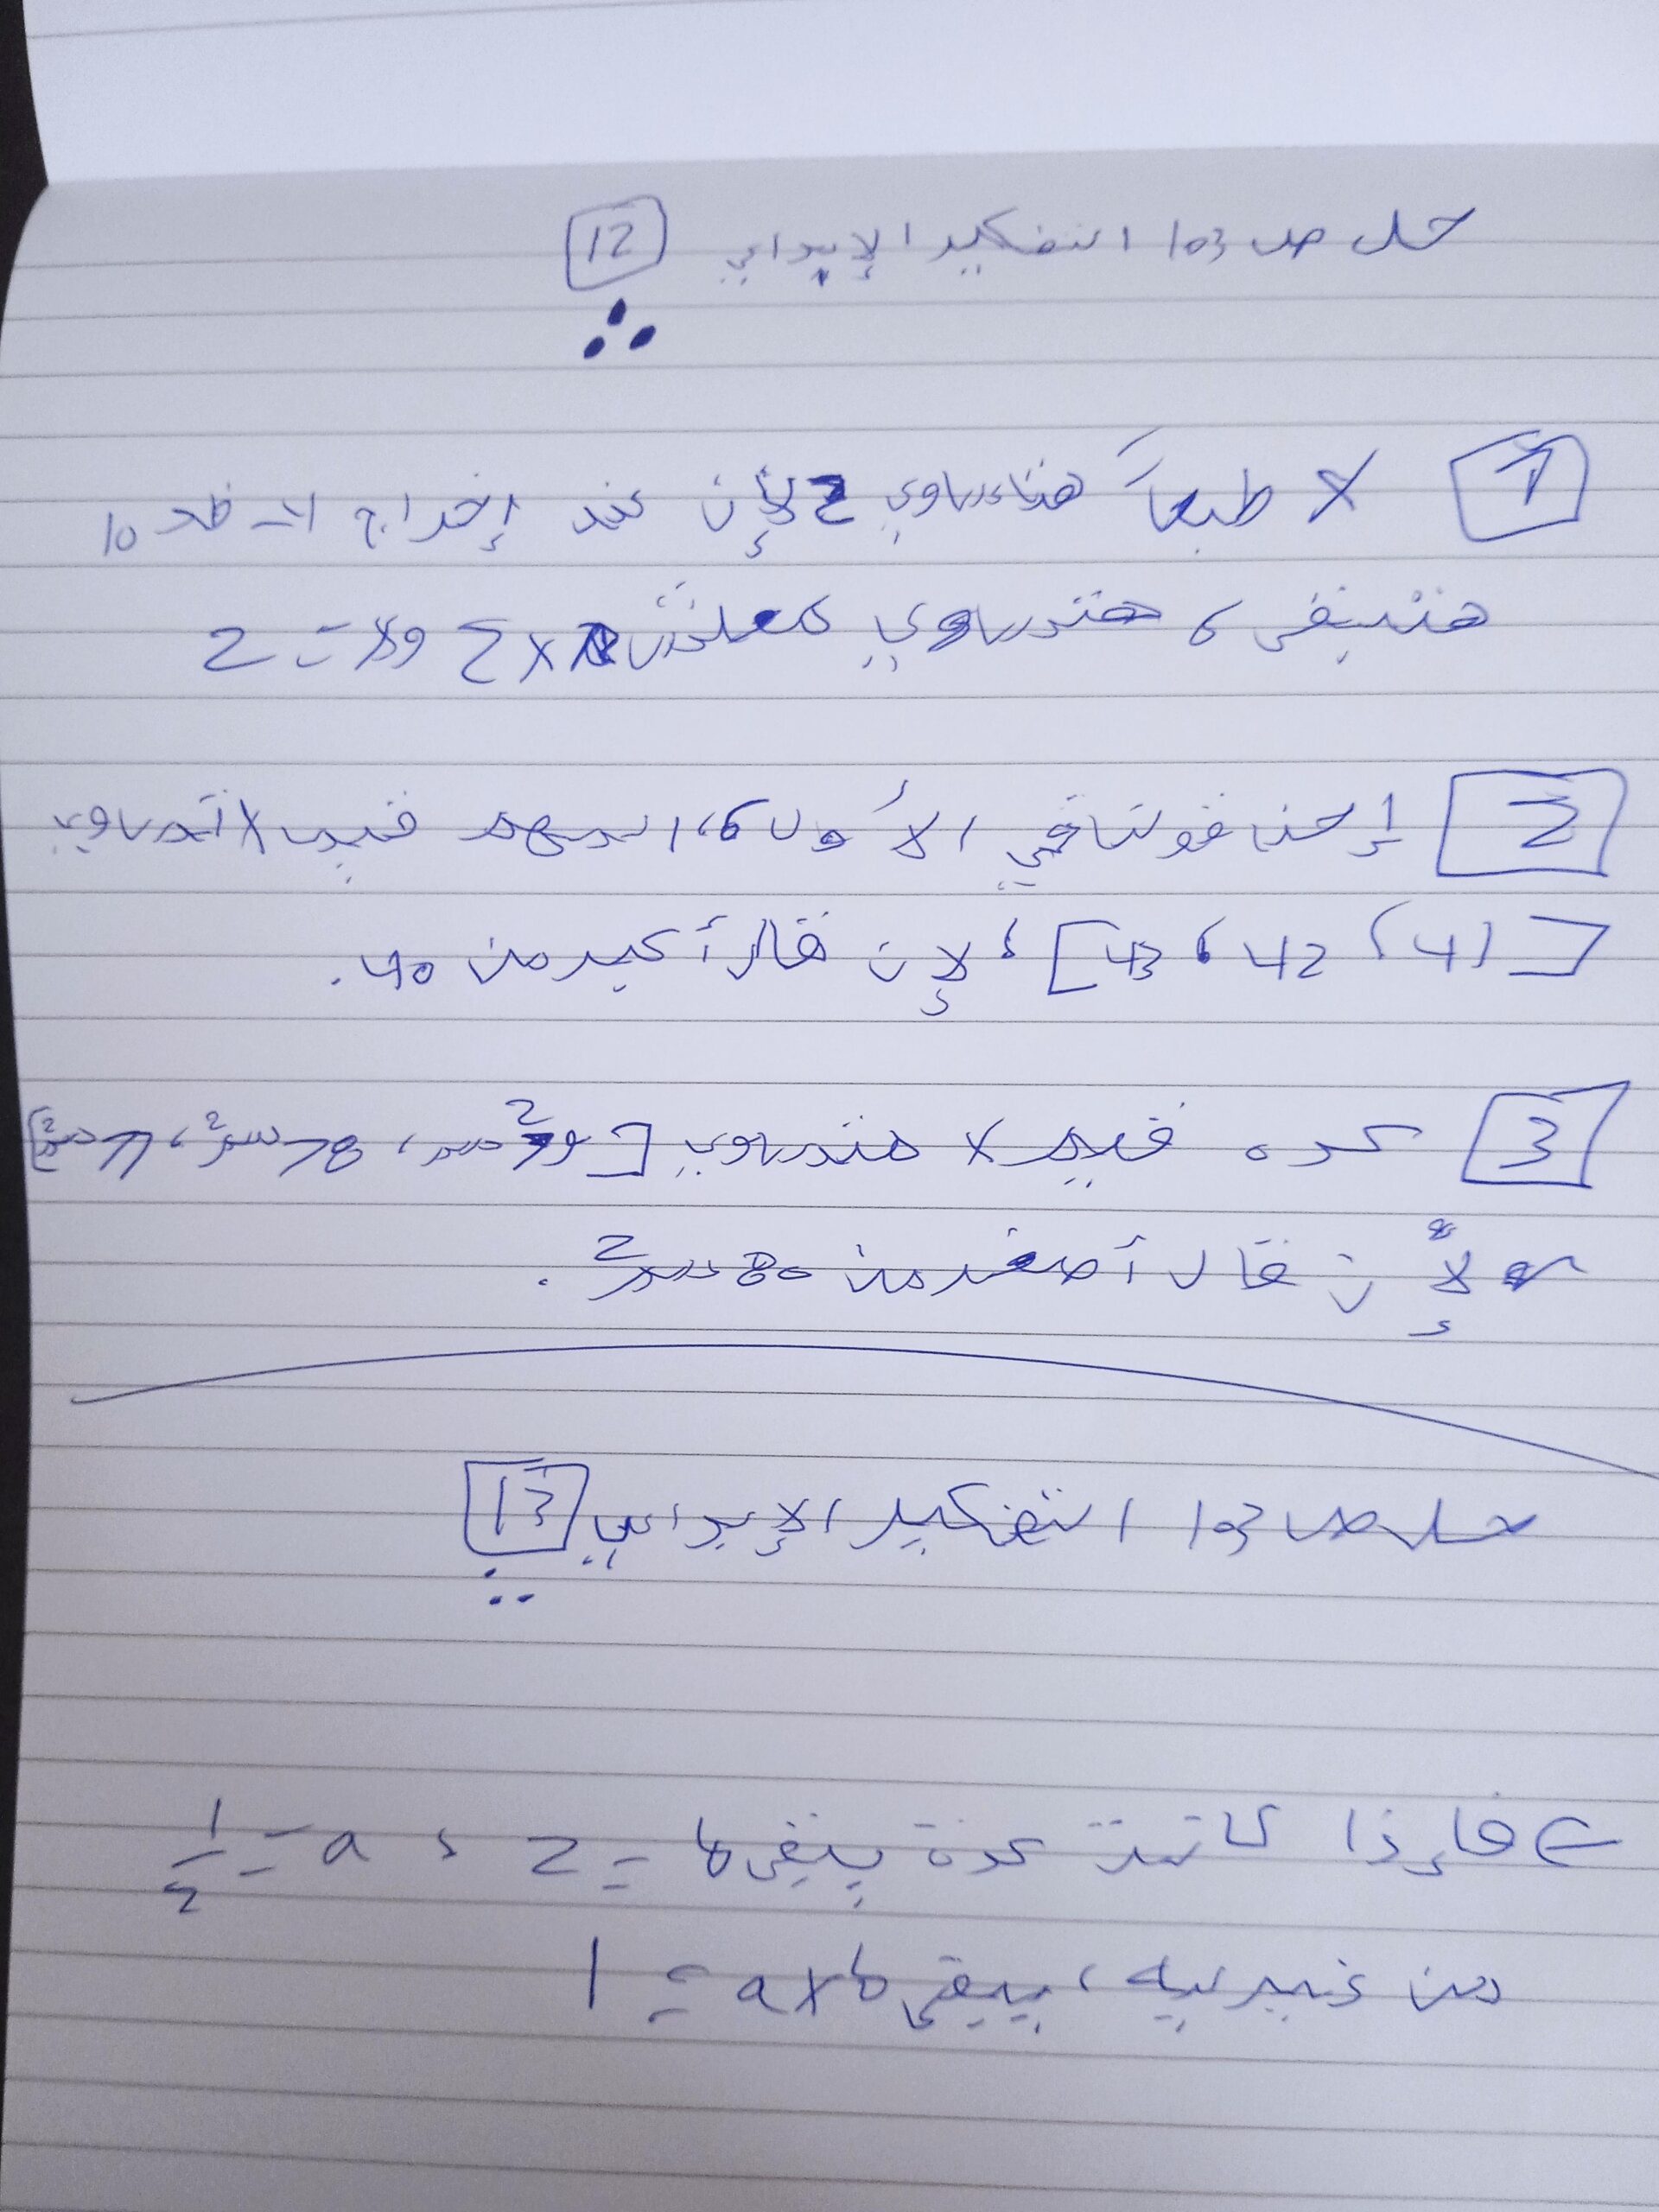 حل ص 103 التفكير الإبداعي 12
1 لا طبعاً هتساوي 2 لأن عند إخراج الـ 10
هتبقى، هتساوي 2 x و x = 2
2 إحنا قولنا في الأول، المهم قيم x تساوي
[41، 42، 43]، لإن قال أكبر من 40.
3 كده قيم x هتساوي [79 سم²، 78 سم²، 77 سم²]
لأن قال أصغر من 80 سم².
حل ص 103 التفكير الإبداعي 13
فإذا كانت كدة يبقى b = 2، a = 1/2
من غير ليه، يبقى a x b = 1